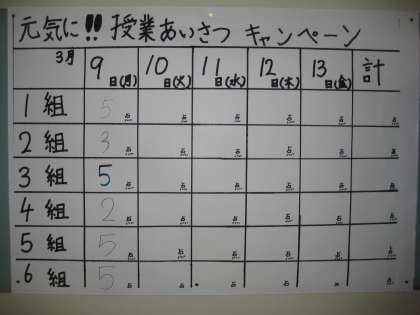 元気に!! 授業あいさつ キャンペーン
3月 9日(月) 10日(火) 11日(水) 12日(木) 13日(金) 計
1組 5点 点 点 点 点 点
2組 3点 点 点 点 点 点
3組 5点 点 点 点 点 点
4組 2点 点 点 点 点 点
5組 5点 点 点 点 点 点
6組 5点 点 点 点 点 点